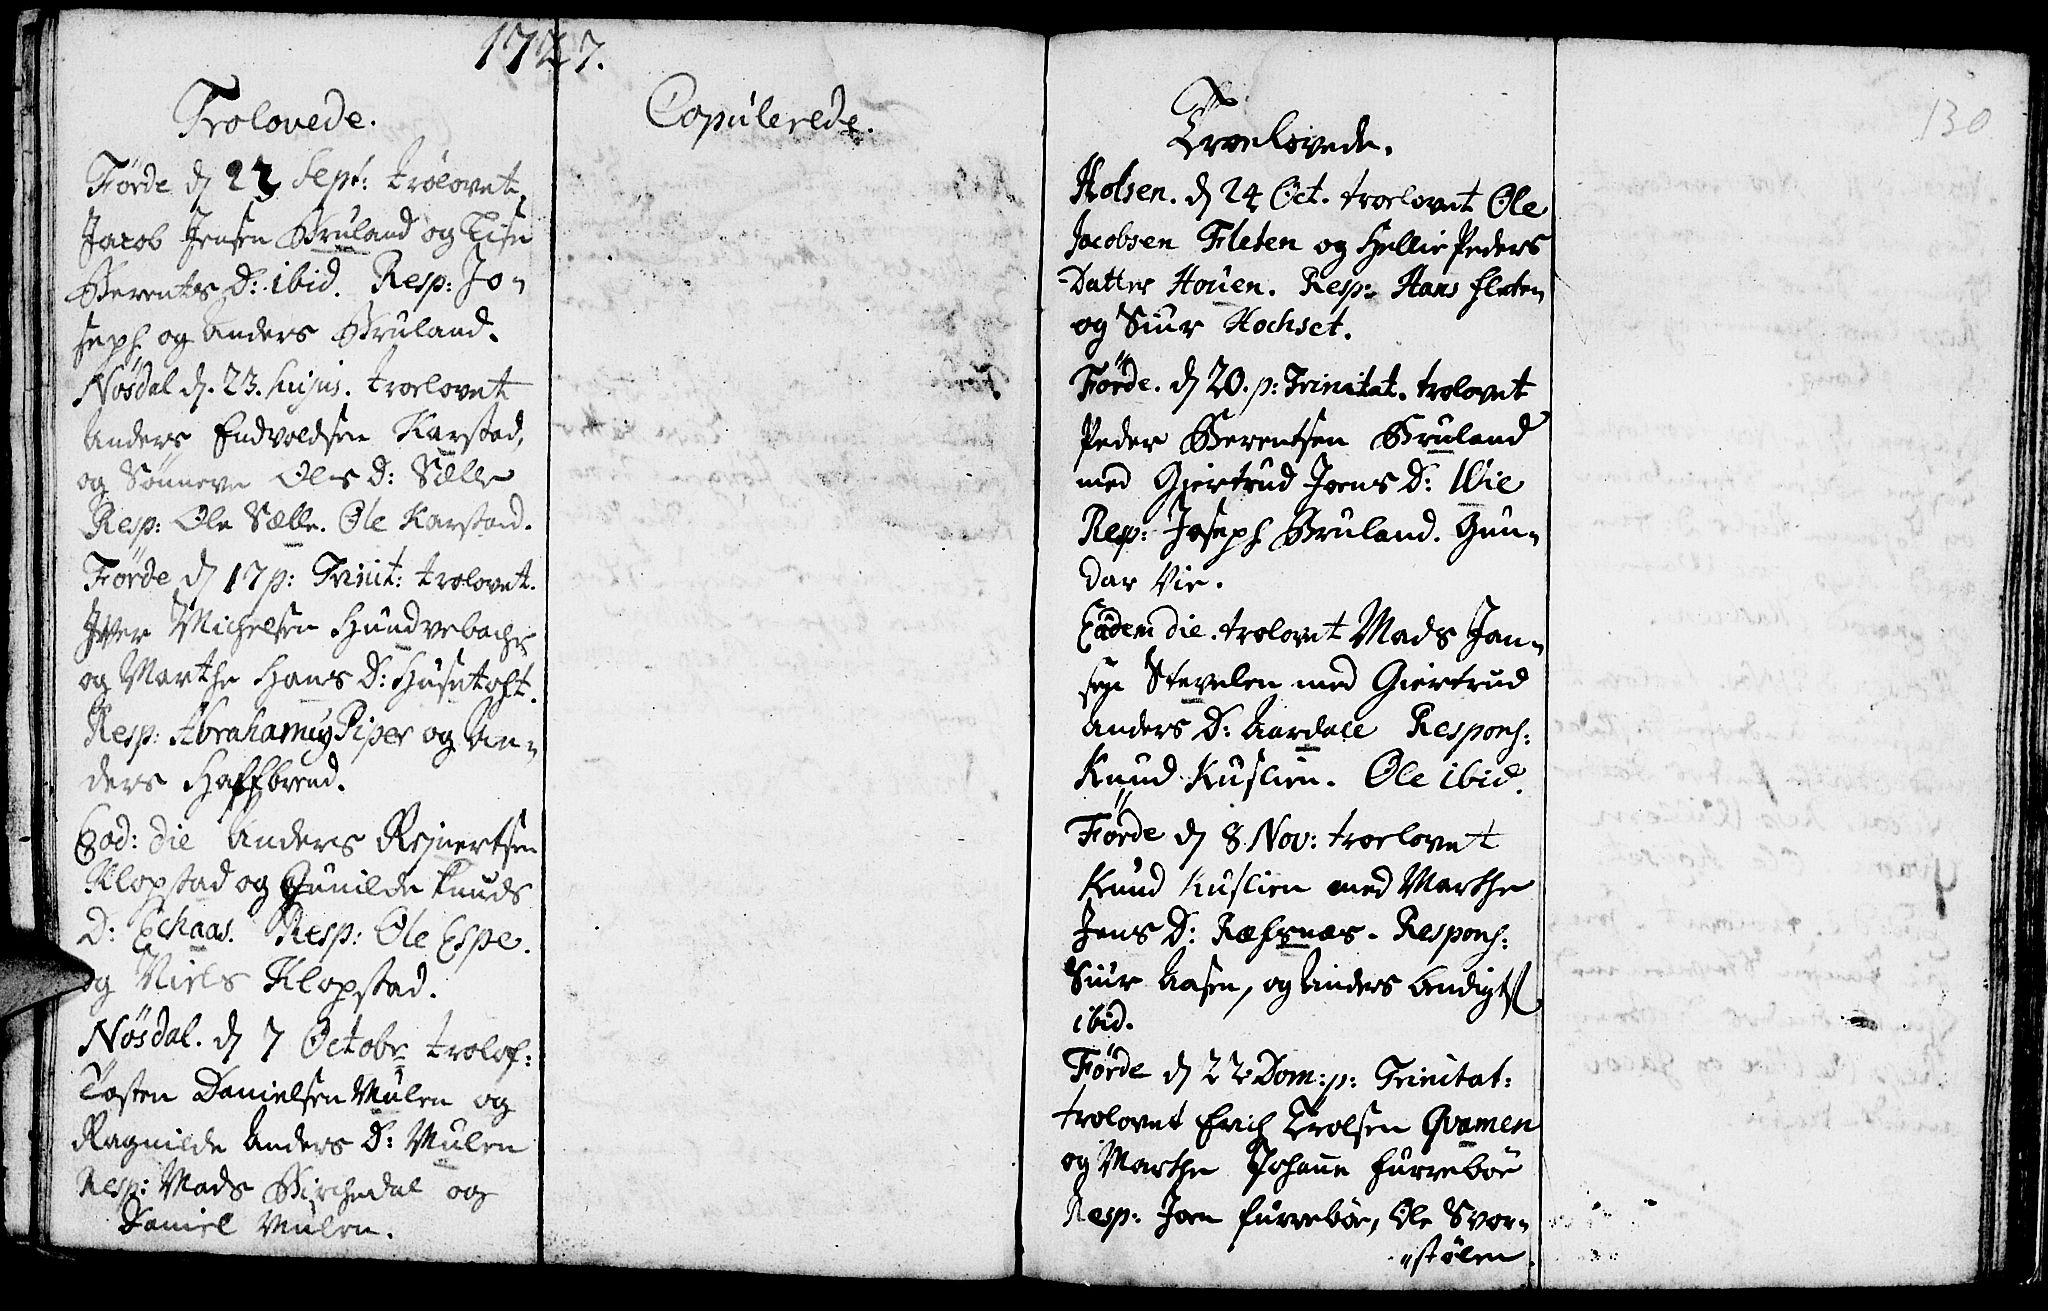 1727.
Trolovede.
Førde d 22 Sept: trolovet
Jacob Jensen Bruland og Lisu
Berents D: ibid. Resp: Jo-
seph og Anders Bruland.
Nøsdal d. 23. hujus. troelovet
Anders Endvoldsen Karstad,
og Sønneve Oles D: Sælle
Resp: Ole Sælle. Ole Karstad.
Førde d 17 p: Trinit: trolovet.
Iver Michelsen Hundvebache
og Marthe Hans D: Husetoft.
Resp: Abrahamus Piper og An-
ders Haffbrend.
Eod: die Anders Rejnertsen
Klopstad og Gunilde Knuds
D: Eckaas. Resp: Ole Espe.
og Niels Klopstad.
Nøsdal. d 7 Octobr trolof:
Tosten Danielsen Mulen og
Ragnilde Anders D: Mulen
Resp: Mads Birchedal og
Daniel Mulen.
Copulerede.
Troelovede.
Holsen. d 24 Oct. troelovet Ole
Jacobsen Fleten og Hellie Peders
Datter Houen. Resp: Hans Fleten
og Siur Hochset.
Førde. d 20. p: Trinitat. trolovet
Peder Berentsen Bruland
med Gjertrud Joens D: Wie
Resp: Joseph Bruland. Gun-
dar Vie.
Eadem die. trolovet Mads Jan-
sen Stevelen med Giertrud
Anders D: Aardale Respons:
Knud Kuslien. Ole ibid.
Førde d 8 Nov: troelovet
Knud Kuslien med Marthe
Jens D: Ræfsnæs. Respons:
Siur Aasen, og Anders
ibid.
Førde d 22 Dom: p: Trinitat:
trolovet Erich Trolsen Qvamen
og Marthe Johanne Furrebøe
Resp: Joen Furrebøe, Ole Svor-
støelen.
130